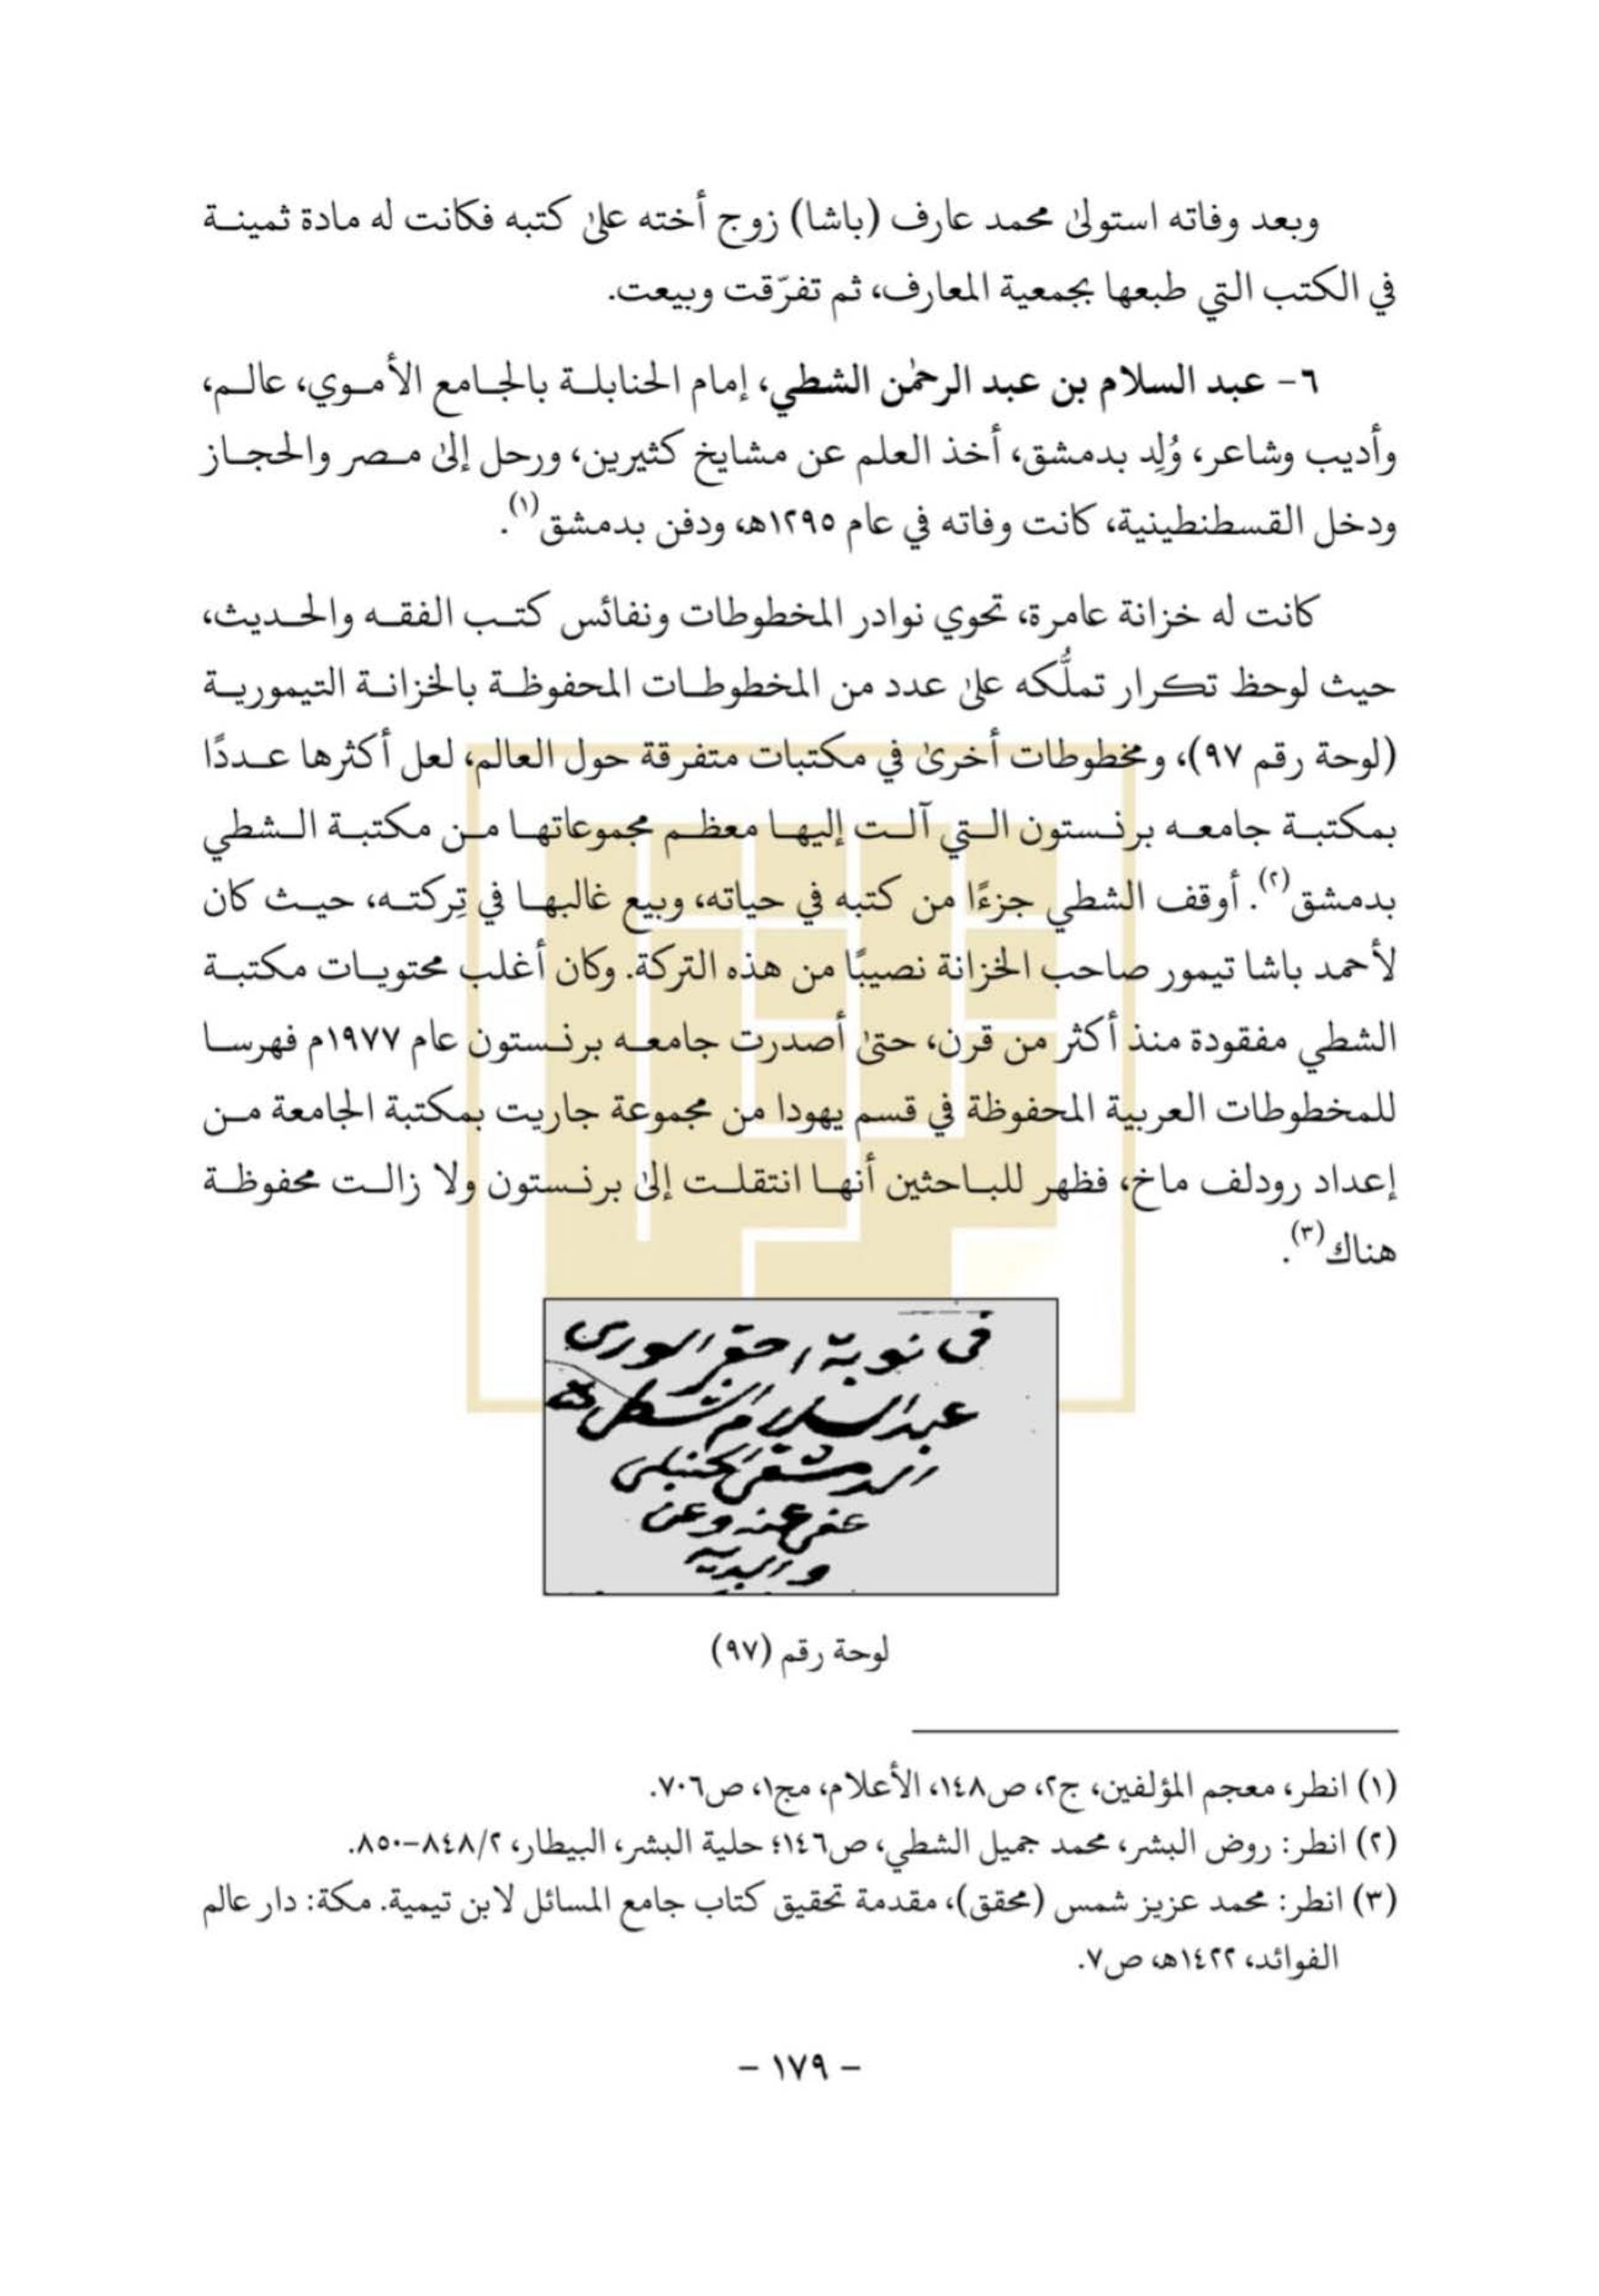 وبعد وفاته استولىٰ محمد عارف (باشا) زوج أخته علىٰ كتبه فكانت له مادة ثمينة
في الكتب التي طبعها بجمعية المعارف، ثم تفرّقت وبيعت.
٦- عبد السلام بن عبد الرحمٰن الشطي، إمام الحنابلة بالجامع الأموي، عالم،
وأديب وشاعر، وُلِد بدمشق، أخذ العلم عن مشايخ كثيرين، ورحل إلىٰ مصر والحجاز
ودخل القسطنطينية، كانت وفاته في عام ١٢٩٥هـ، ودفن بدمشق(١).
كانت له خزانة عامرة، تحوي نوادر المخطوطات ونفائس كتب الفقه والحديث،
حيث لوحظ تكرار تملُّكه علىٰ عدد من المخطوطات المحفوظة بالخزانة التيمورية
(لوحة رقم ٩٧)، ومخطوطات أخرىٰ في مكتبات متفرقة حول العالم، لعل أكثرها عددًا
بمكتبة جامعه برنستون التي آلت إليها معظم مجموعاتها من مكتبة الشطي
بدمشق(٢). أوقف الشطي جزءًا من كتبه في حياته، وبيع غالبها في تِركته، حيث كان
لأحمد باشا تيمور صاحب الخزانة نصيبًا من هذه التركة. وكان أغلب محتويات مكتبة
الشطي مفقودة منذ أكثر من قرن، حتىٰ أصدرت جامعه برنستون عام ١٩٧٧م فهرسا
للمخطوطات العربية المحفوظة في قسم يهودا من مجموعة جاريت بمكتبة الجامعة من
إعداد رودلف ماخ، فظهر للباحثين أنها انتقلت إلىٰ برنستون ولا زالت محفوظة
هناك(٣).
في نوبة احقر الورى
عبد السلام الشطي
الدمشقي الحنبلي
عفي عنه وعن
والديه
لوحة رقم (٩٧)
(١) انظر، معجم المؤلفين، ج٢، ص١٤٨، الأعلام، مج١، ص٧٠٦.
(٢) انظر: روض البشر، محمد جميل الشطي، ص١٤٦؛ حلية البشر، البيطار، ٨٤٨/٢-٨٥٠.
(٣) انظر: محمد عزيز شمس (محقق)، مقدمة تحقيق كتاب جامع المسائل لابن تيمية. مكة: دار عالم
الفوائد، ١٤٢٢هـ، ص٧.
- ١٧٩ -